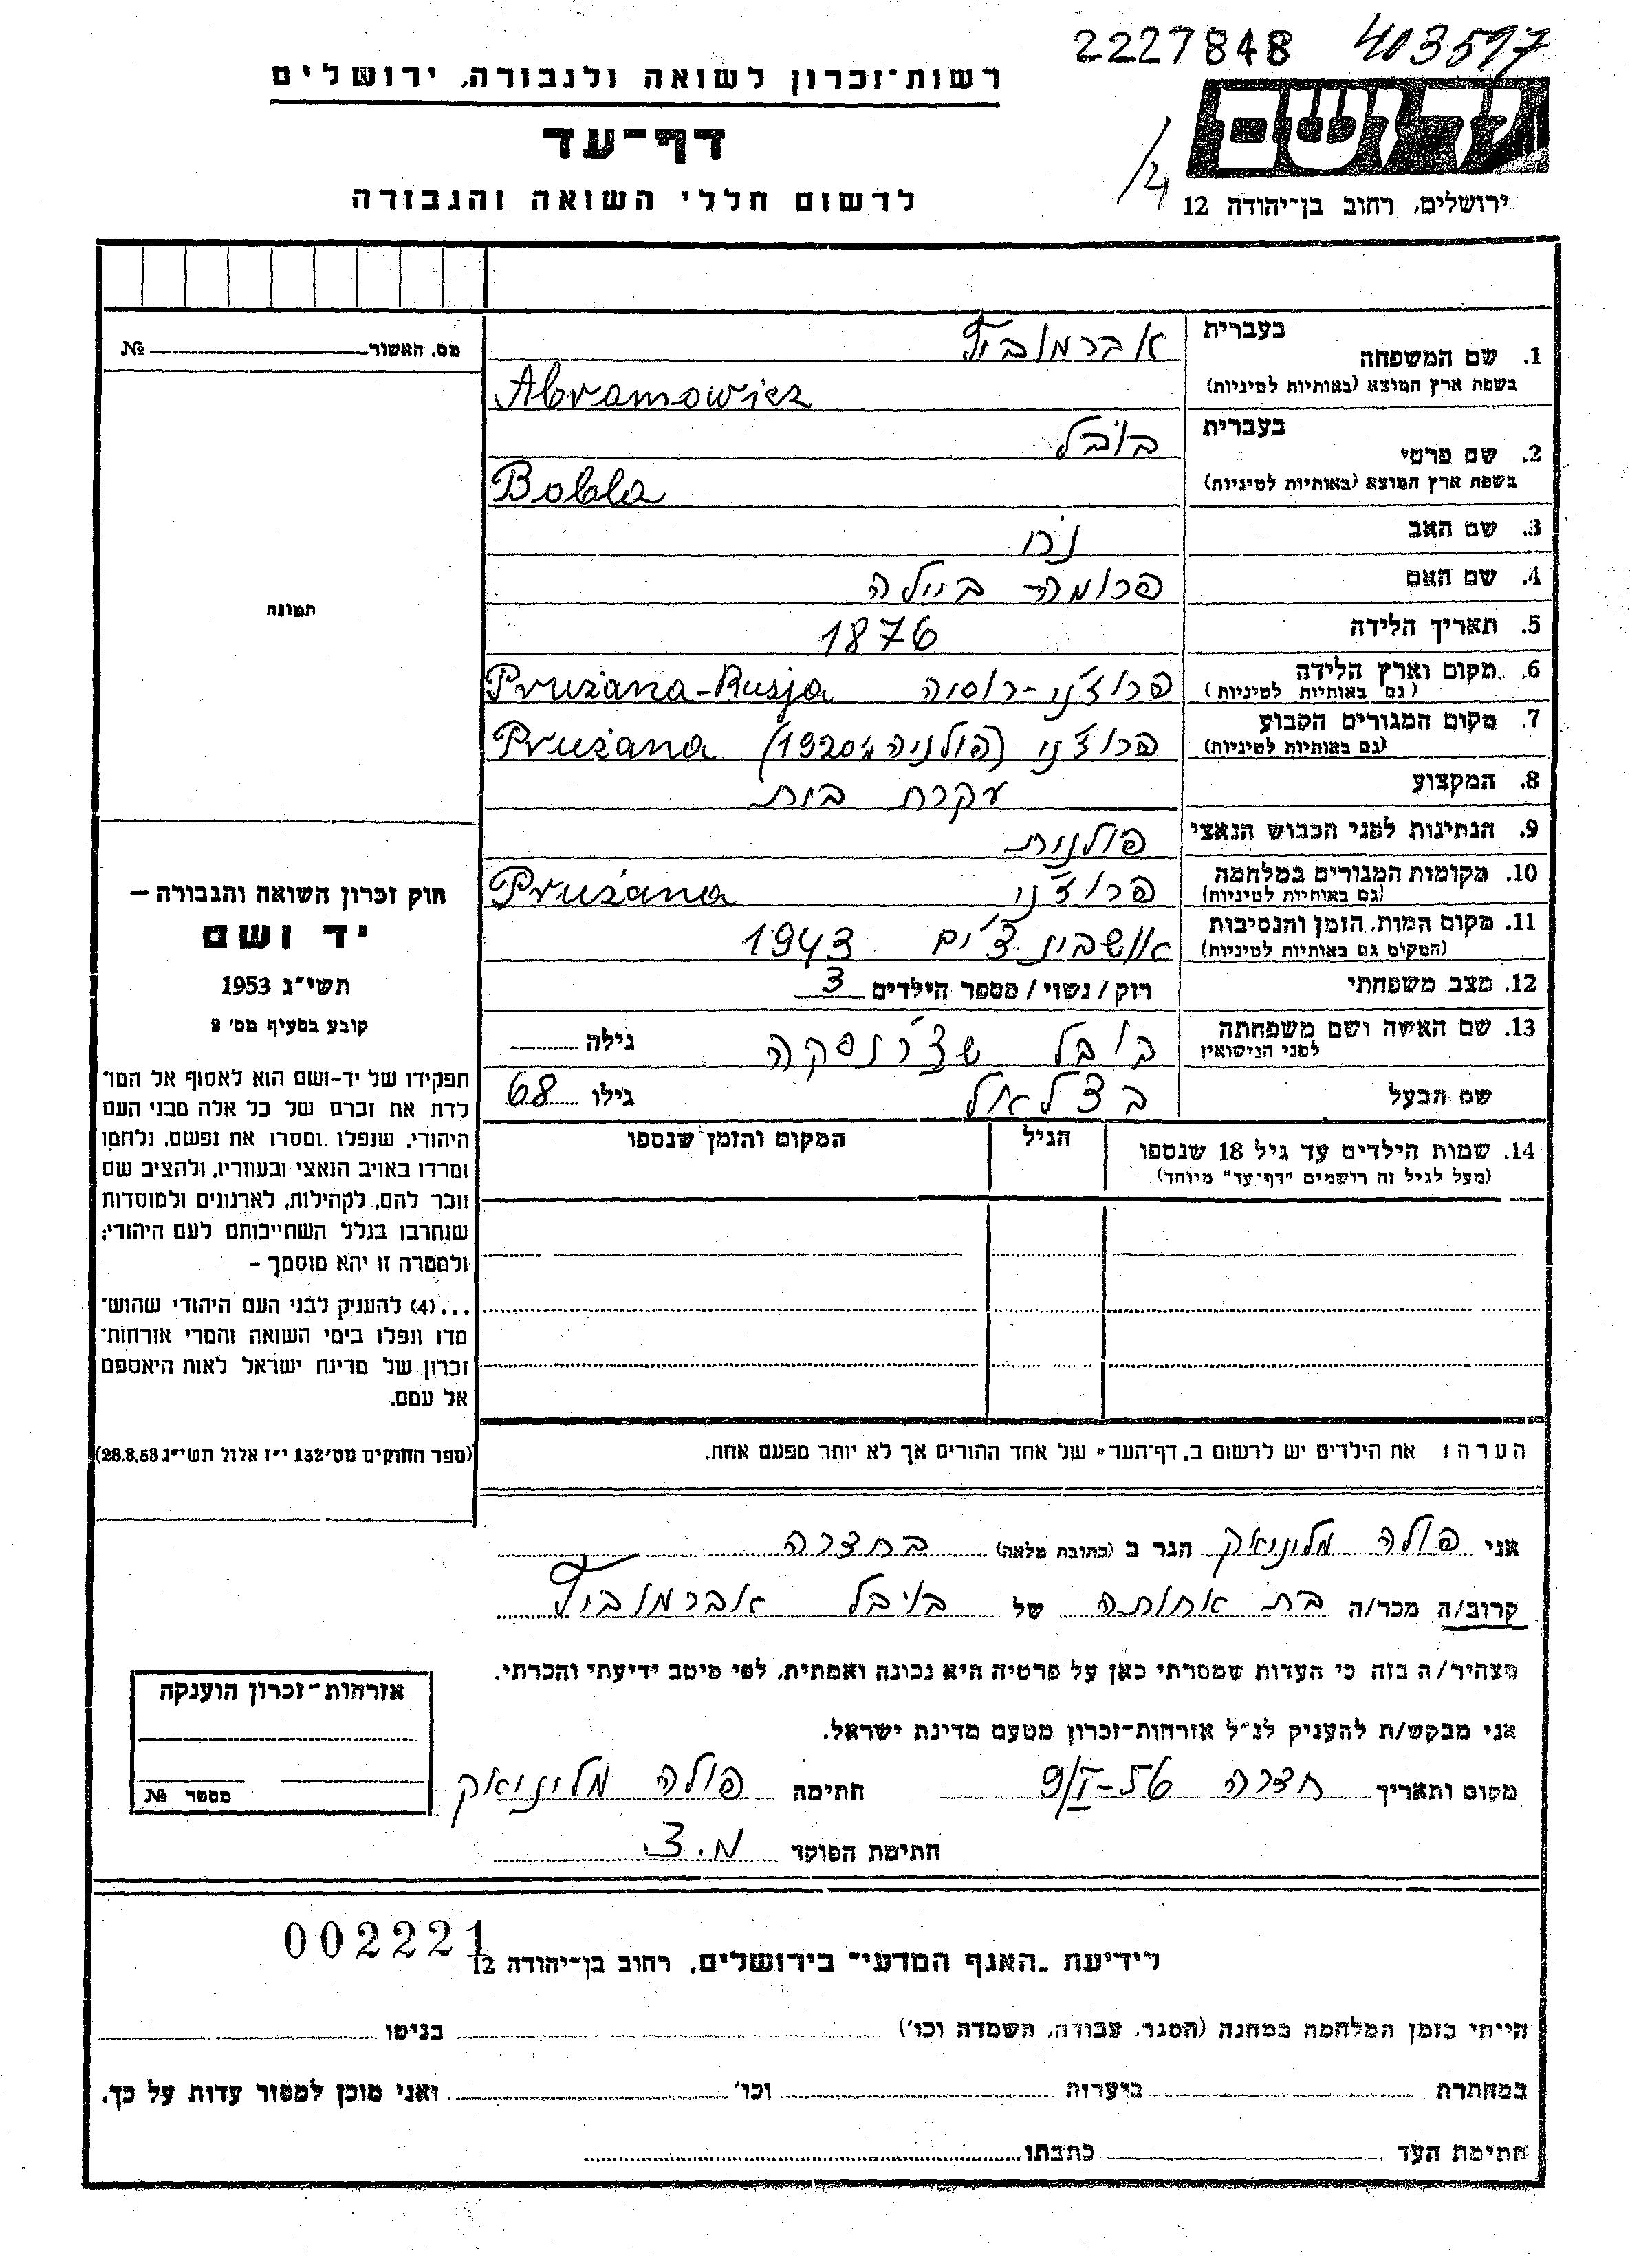 2227848 403597
רשות־זכרון לשואה ולגבורה, ירושלים
יד ושם
דף־עד
לרשום חללי השואה והגבורה
ירושלים, רחוב בן־יהודה 12
מס. האשור № 
1. שם המשפחה בעברית אברמוביץ
בשפת ארץ המוצא (באותיות לטיניות) Abramowicz
2. שם פרטי בעברית בובל
בשפת ארץ המוצא (באותיות לטיניות) Bobla
3. שם האב נח
4. שם האם פרומה ביילה
5. תאריך הלידה 1876
6. מקום וארץ הלידה (גם באותיות לטיניות) פרוז'ני-רוסיה Prużana-Rusja
7. מקום המגורים הקבוע (גם באותיות לטיניות) פרוז'ני (פולניה 1920) Prużana
8. המקצוע עקרת בית
9. הנתינות לפני הכבוש הנאצי פולנית
10. מקומות המגורים במלחמה (גם באותיות לטיניות) פרוז'ני Prużana
11. מקום המות, הזמן והנסיבות (המקום גם באותיות לטיניות) 1943
12. מצב משפחתי רוק / נשוי / מספר הילדים 3
13. שם האשה ושם משפחתה לפני הנישואין בובל גילה
שם הבעל בצלאל גילו 68
14. שמות הילדים עד גיל 18 שנספו הגיל המקום והזמן שנספו
(מעל לגיל זה רושמים "דף־עד" מיוחד)
הערה: את הילדים יש לרשום ב„דף־העד" של אחד ההורים אך לא יותר מפעם אחת.
תמונה
חוק זכרון השואה והגבורה —
יד ושם
תשי"ג 1953
קובע בסעיף מס'
תפקידו של יד-ושם הוא לאסוף אל המו־
לדת את זכרם של כל אלה מבני העם
היהודי, שנפלו ומסרו את נפשם, נלחמו
ומרדו באויב הנאצי ובעוזריו, ולהציב שם
וזכר להם, לקהילות, לארגונים ולמוסדות
שנחרבו בגלל השתייכותם לעם היהודי;
ולמטרה זו יהא מוסמך —
...(4) להעניק לבני העם היהודי שהוש־
מדו ונפלו בימי השואה והמרי אזרחות־
זכרון של מדינת ישראל לאות היאספם
אל עמם.
(ספר החוקים מס' 132 י"ז אלול תשי"ג 28.8.53)
אני פולה מליניאק הגר ב (כתובת מלאה) בחדרה
קרוב/ה מכר/ה בת אחותה של בובל אברמוביץ
מצהיר/ה בזה כי העדות שמסרתי כאן על פרטיה היא נכונה ואמתית, לפי מיטב ידיעתי והכרתי.
אני מבקש/ת להעניק לנ"ל אזרחות־זכרון מטעם מדינת ישראל.
מקום ותאריך חדרה 9/I-56 חתימה פולה מליניאק
חתימת הפוקד מ.צ
אזרחות־זכרון הוענקה
מספר №
002221
לידיעת „האגף המדעי" בירושלים, רחוב בן־יהודה 12
הייתי בזמן המלחמה במחנה (הסגר, עבודה, השמדה וכו') בגיטו
במחתרת ביערות וכו' ואני מוכן למסור עדות על כך.
חתימת העד כתבתו